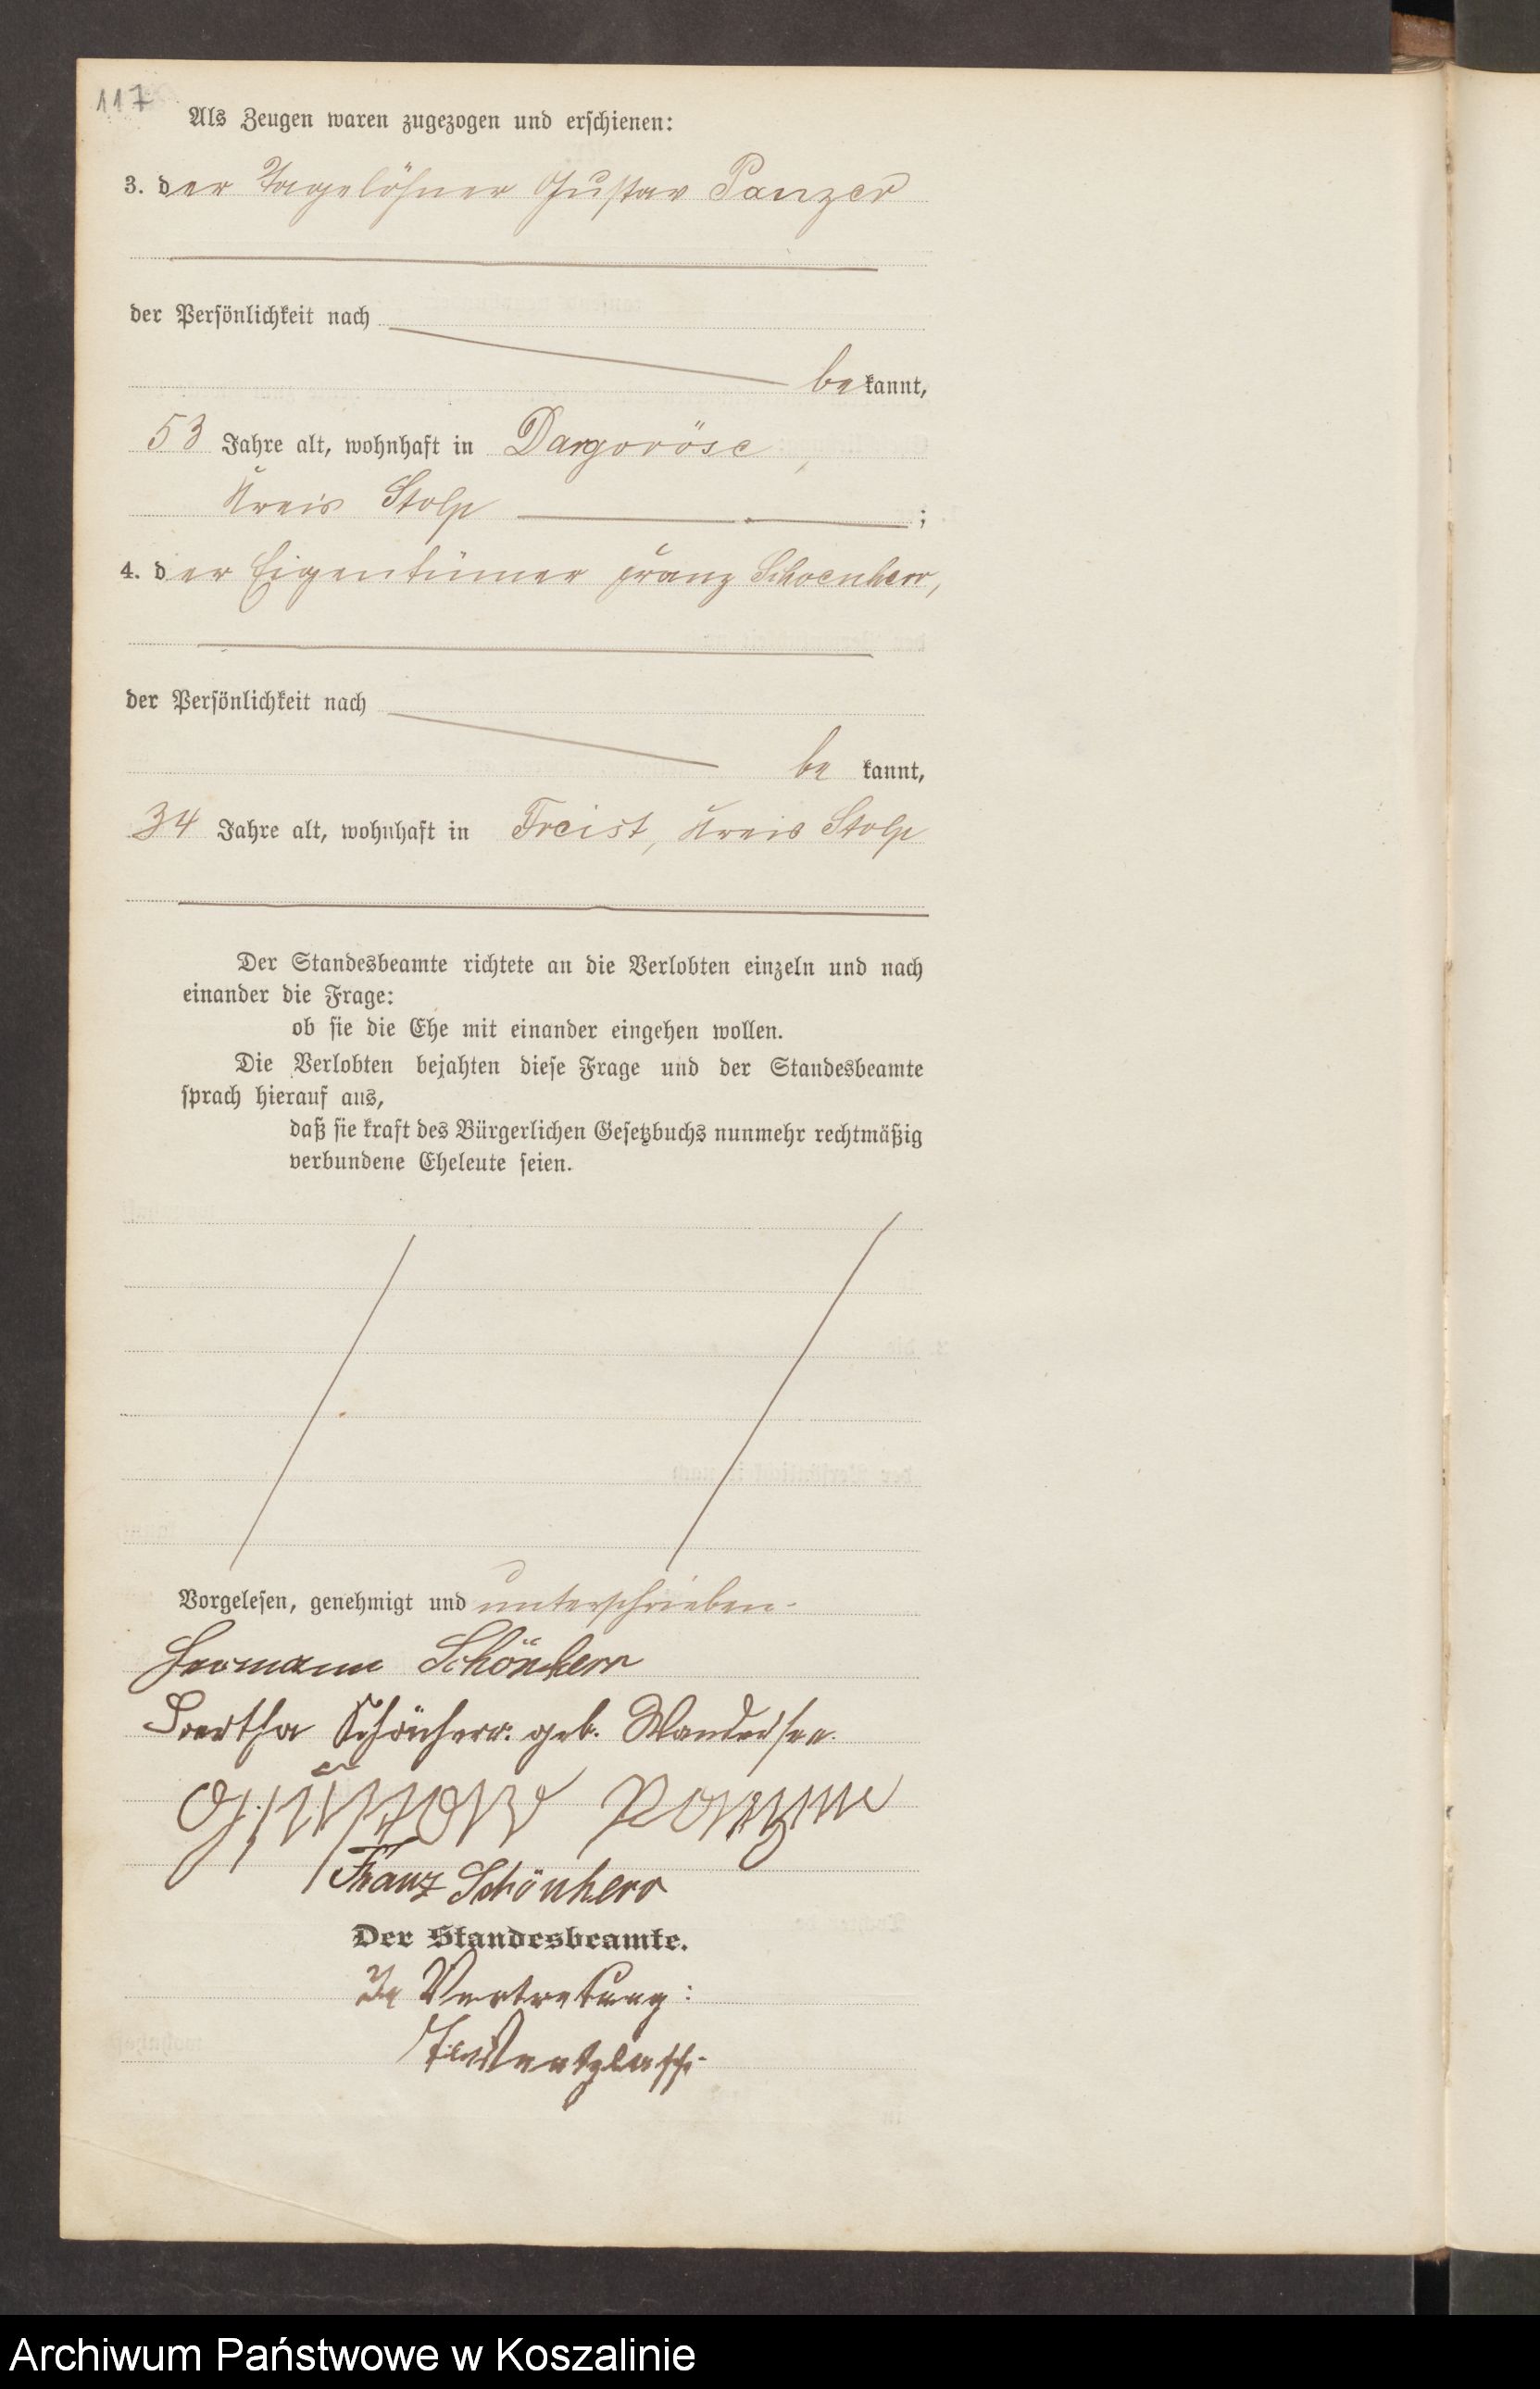 117
Als Zeugen waren zugezogen und erschienen:
3. der Tagelöhner Gustav Panzer
der Persönlichkeit nach
bekannt,
53 Jahre alt, wohnhaft in Dargeröse,
Kreis Stolp ;
4. der Eigentümer Franz Schoenherr,
der Persönlichkeit nach
be kannt,
34 Jahre alt, wohnhaft in Freist, Kreis Stolp
Der Standesbeamte richtete an die Verlobten einzeln und nach
einander die Frage:
ob sie die Ehe mit einander eingehen wollen.
Die Verlobten bejahten diese Frage und der Standesbeamte
sprach hierauf aus,
daß sie kraft des Bürgerlichen Gesetzbuchs nunmehr rechtmäßig
verbundene Eheleute seien.
Vorgelesen, genehmigt und unterschrieben.
Hermann Schönherr
Bertha Schönherr. geb. Wandersee.
Gustav
Franz Schönherr
Der Standesbeamte.
In Vertretung:
Archiwum Państwowe w Koszalinie